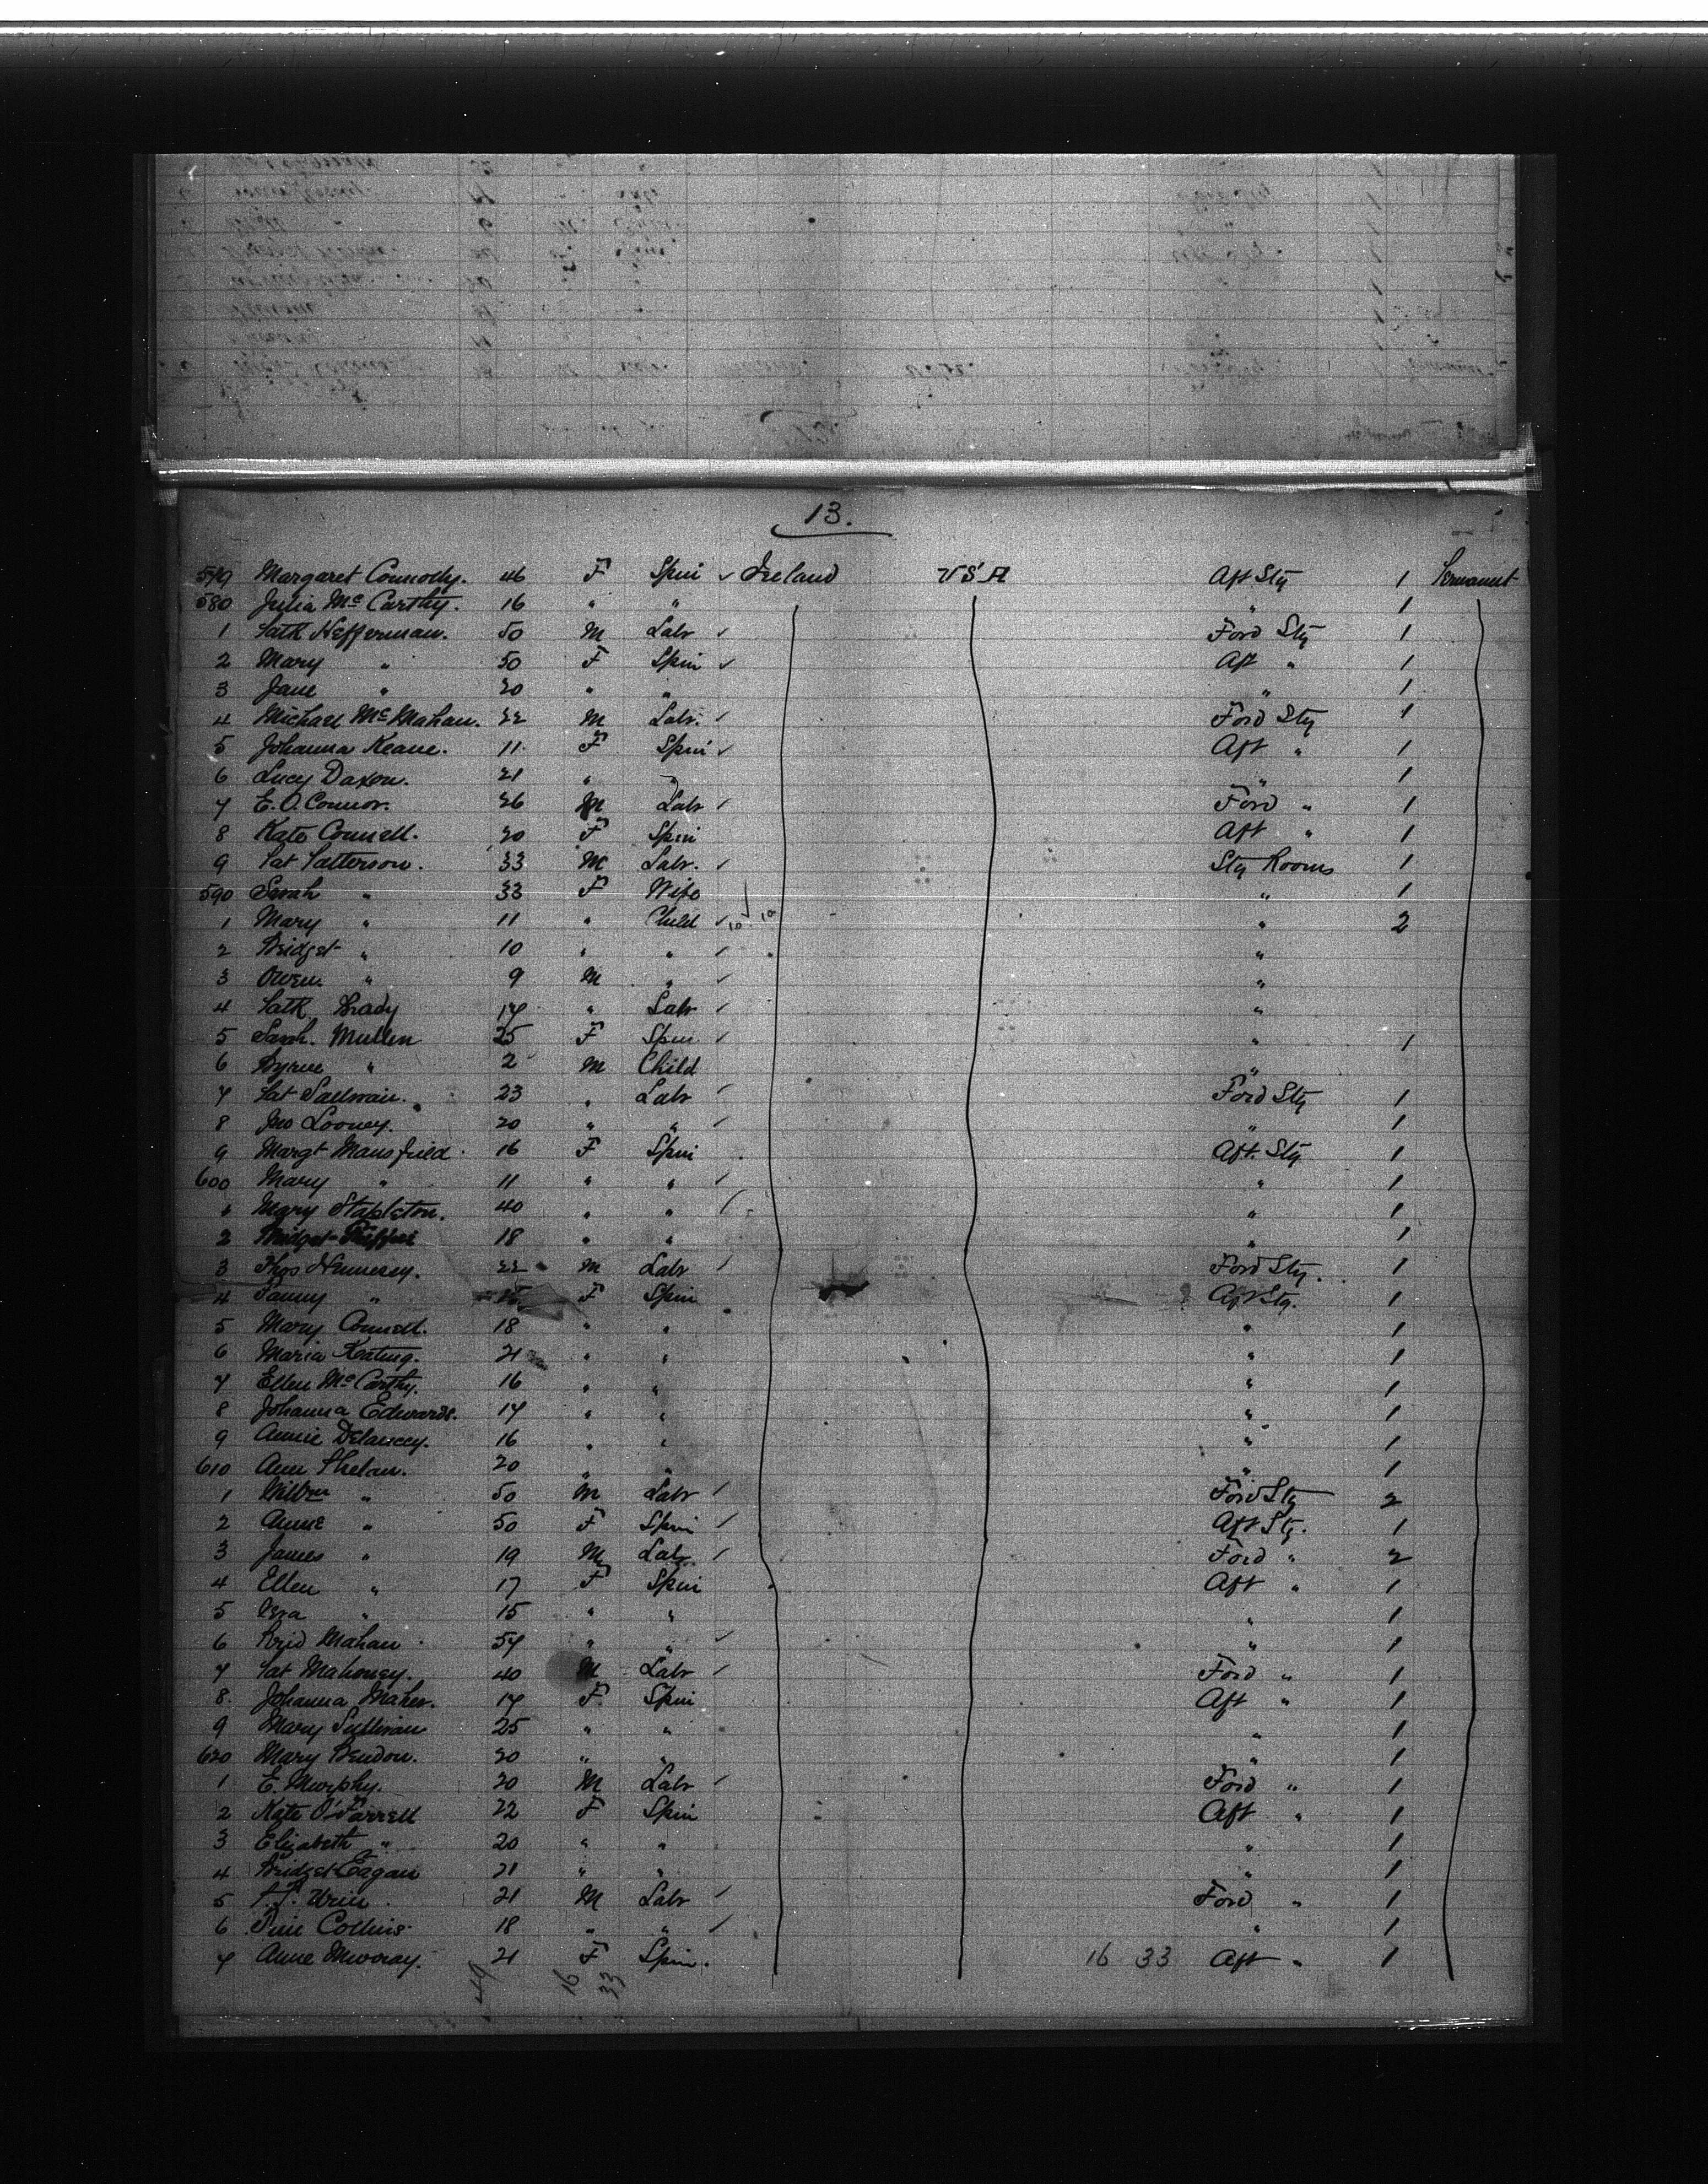 13.
579 Margaret Connolly. 46 F Spin ✓ Ireland U S A Aft Stg 1 Permanent
580 Julia Mc Carthy. 16 " " " 1
1 Patk Heffernan. 50 M Labr ✓ Ford Stg 1
2 Mary " 50 F Spin ✓ Aft " 1
3 Jane " 20 " " " 1
4 Michael Mc Mahan. 22 M Labr. ✓ Ford Stg 1
5 Johanna Keane. 11 F Spin ✓ Aft " 1
6 Lucy Daxon. 21 " " " 1
7 E. O. Connor. 26 M Labr ✓ Ford " 1
8 Kate Connell. 20 F Spin Aft " 1
9 Pat Patterson. 33 M Labr. ✓ Stg Rooms 1
590 Sarah " 33 F Wife " 1
1 Mary " 11 " Child ✓ 10 10 " 2
2 Bridget " 10 " " ✓ "
3 Owen. " 9 M " ✓ "
4 Patk Brady 17 " Labr ✓ "
5 Sarah. Mullen 25 F Spin ✓ " 1
6 Byrne " 2 M Child "
7 Pat Sullivan. 23 " Labr ✓ Ford Stg 1
8 Jno Looney. 20 " " ✓ " 1
9 Margt Mansfield. 16 F Spin Aft. Stg 1
600 Mary " 11 " " ✓ " 1
1 Mary Stapleton. 40 " " ✓ " 1
2 Bridget 18 " " " 1
3 Thos Hennesey. 22 M Labr ✓ Ford Stg. 1
4 Fanny " F Spin Aft Stg. 1
5 Mary Connell. 18 " " " 1
6 Maria Keating. 21 " " " 1
7 Ellen Mc Carthy. 16 " " " 1
8 Johanna Edwards. 17 " " " 1
9 Annie Delancey. 16 " " " 1
610 Ann Phelan. 20 " " " 1
1 Willm " 50 M Labr ✓ Ford Stg 2
2 Anne " 50 F Spin ✓ Aft Stg. 1
3 James " 19 M Labr ✓ Ford " 2
4 Ellen " 17 F Spin Aft " 1
5 " 15 " " " 1
6 Brid Mahan 54 " " ✓ " 1
7 Pat Mahoney. 40 M Labr ✓ Ford " 1
8. Johanna Maher. 17 F. Spin Aft " 1
9 Mary Sullivan 25 " " " 1
620 Mary Bendon. 20 " " " 1
1 E. Murphy. 20 M Labr ✓ Ford " 1
2 Kate O'Farrell 22 F Spin Aft " 1
3 Elizabeth " 20 " " " 1
4 Bridget Eagan 21 " " " 1
5 21 M Labr ✓ Ford " 1
6 Collins 18 " " ✓ " 1
7 Anne Murray. 21 F Spin. 16 33 Aft " 1
49 16 33